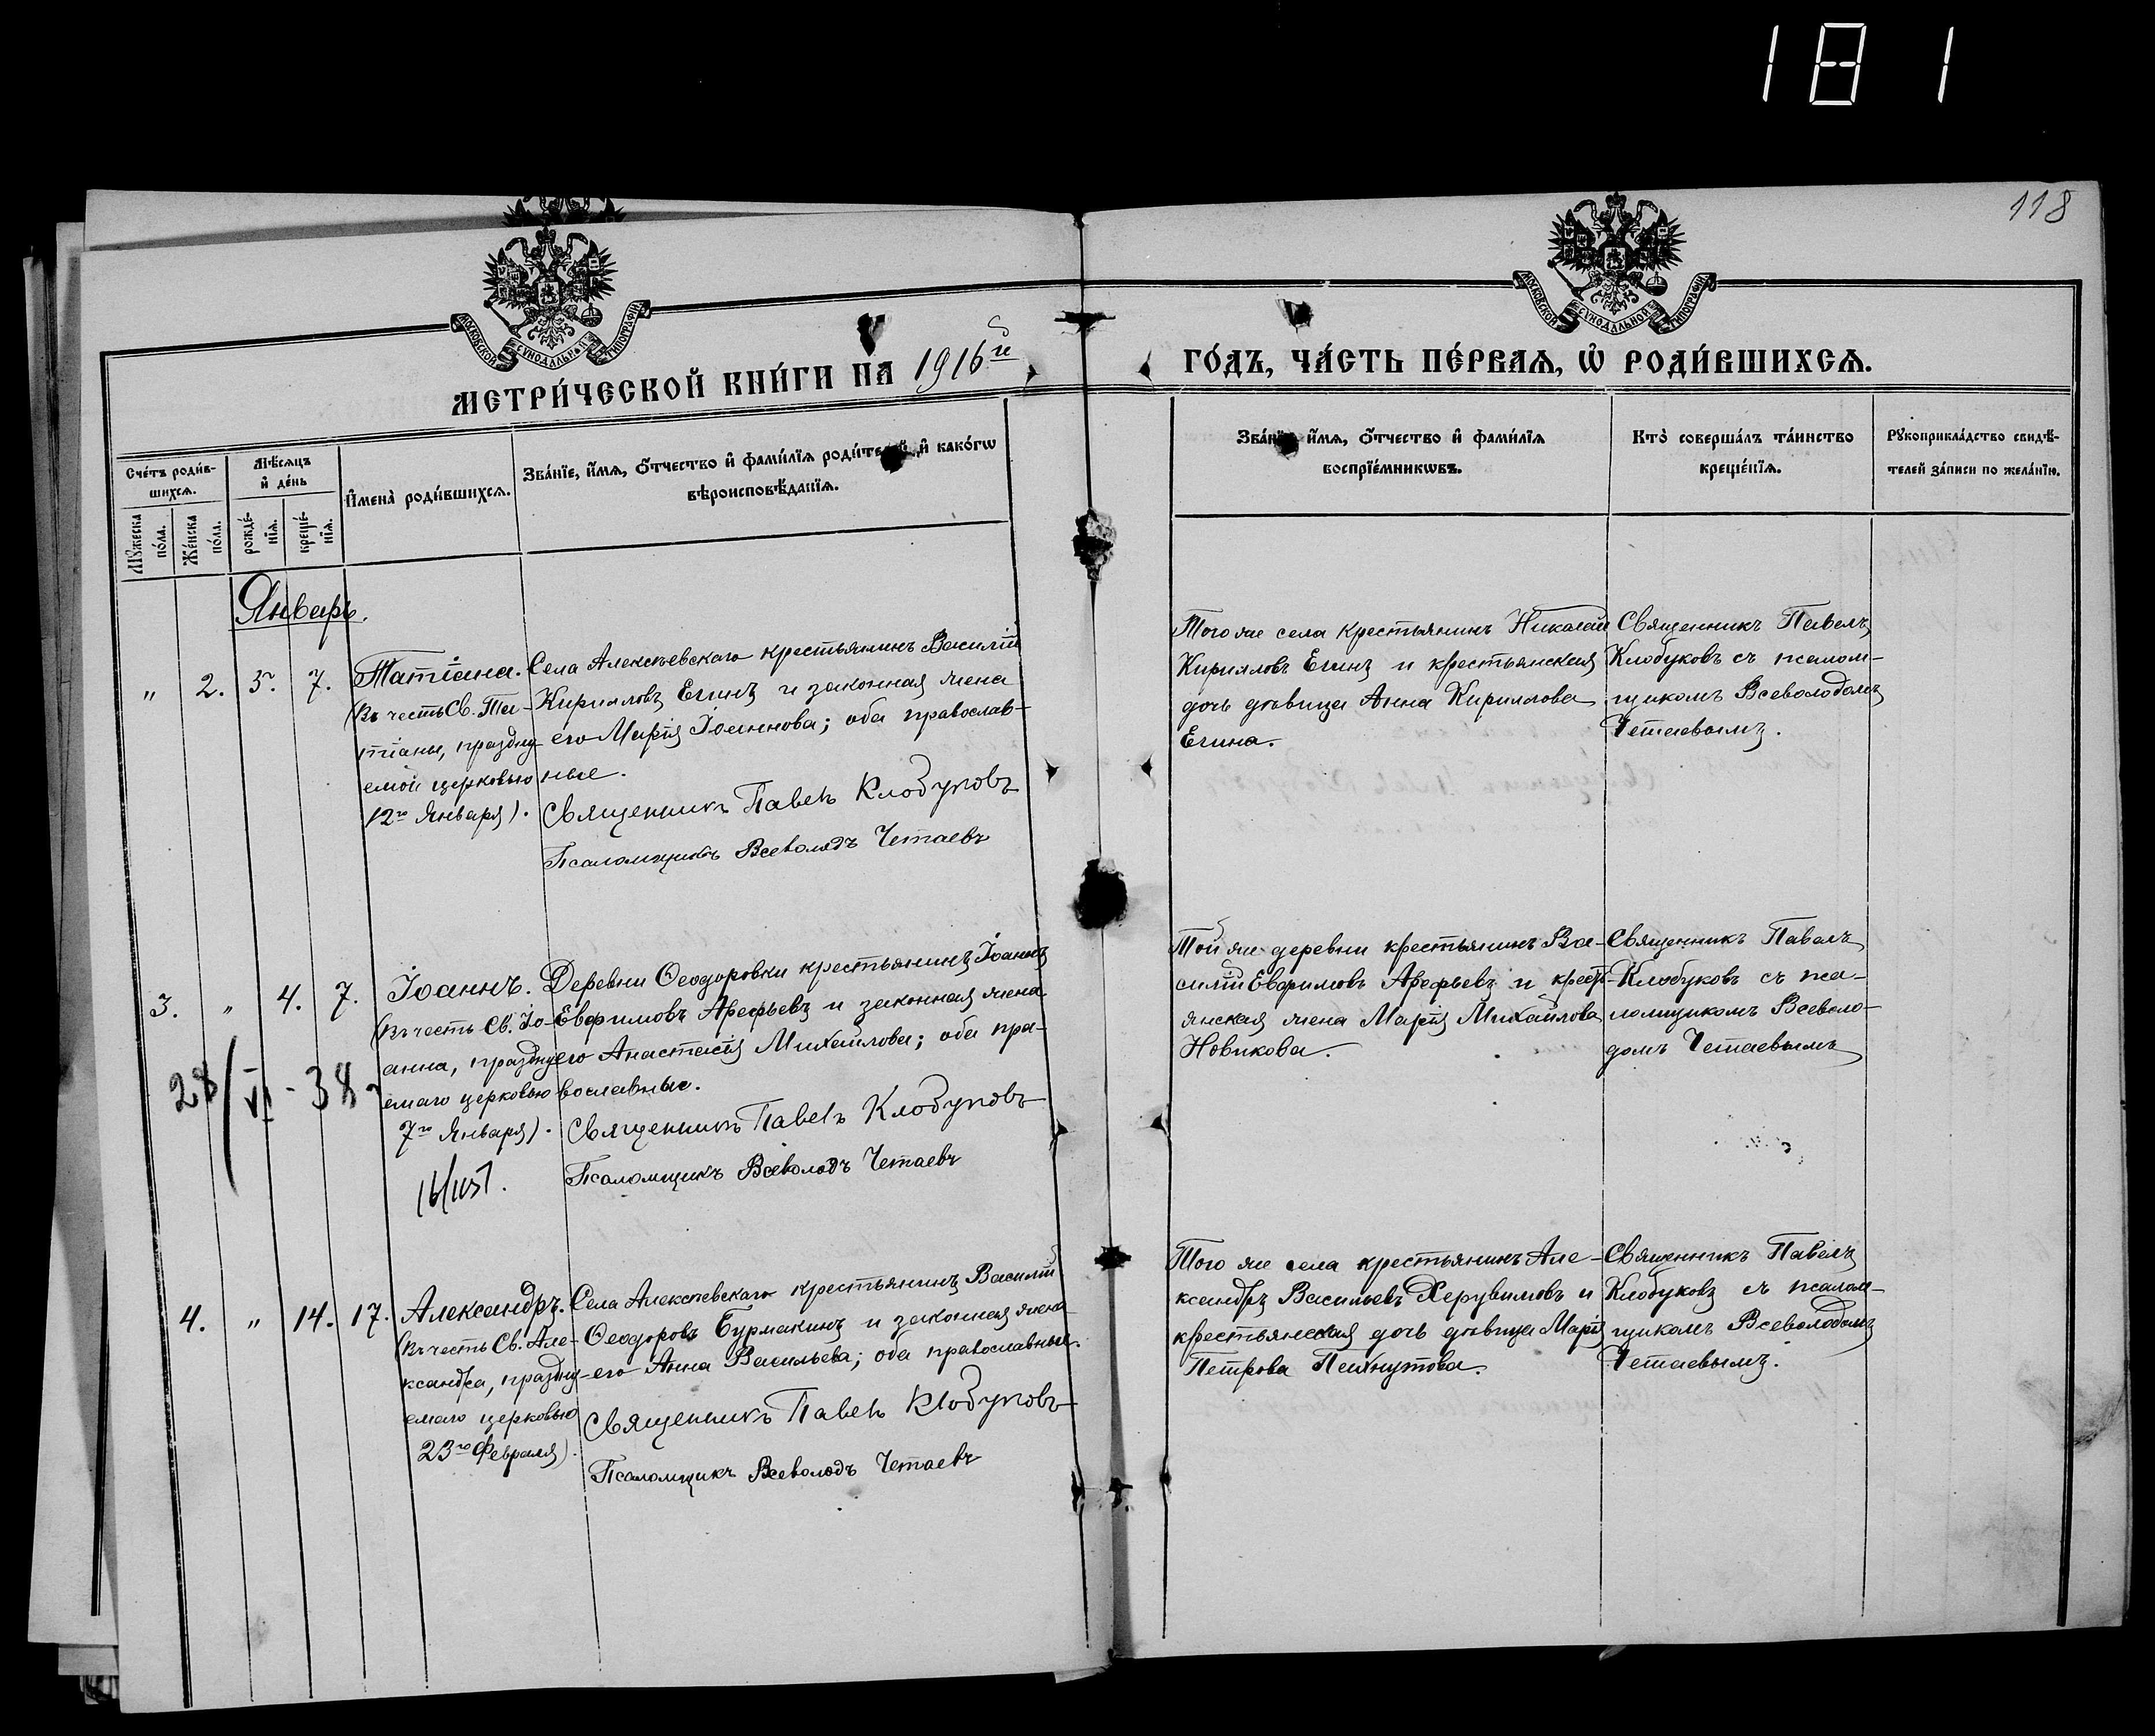 181
118
МОСКОВСКОЙ СѴНОДАЛЬНОЙ ТИПОГРАФІИ
МОСКОВСКОЙ СѴНОДАЛЬНОЙ ТИПОГРАФІИ
МЕТРИ́ЧЕСКОЙ КНИ́ГИ НА 1916й
ГО́ДЪ, ЧА́СТЬ ПЕ́РВАѦ, Ѽ РОДИ́ВШИХСѦ.
Сче́тъ роди́в-
шихсѧ.
Мѣ́сѧцъ
и҆ де́нь
И҆мена̀ роди́вшихсѧ.
Зва́нїе, и҆́мѧ, ѻ҆́тчество и҆ фамн́лїѧ роди́телей, и҆ како́гѡ
вѣроисповѣ́данїѧ.
Мꙋ́жеска
по́ла.
Же́нска
по́ла.
рожде́-
нїѧ.
креще́-
нїѧ.
Зва́нїе, и҆́мѧ, ѻ҆́тчество и҆ фами́лїѧ
воспрїе́мникѡвъ.
Кто̀ соверша́лъ та́инство
креще́нїѧ.
Рꙋкоприкла́дство свидѣ́-
телей за́писи по жела́нїю.
Январь.
" 2. 3. 7.
Татіана.
(Въ честь Св. Та-
тіаны, праздну-
емой церковью
12го Января).
Села Алексѣевскаго крестьянинъ Василій
Кирилловъ Егинъ и законная жена
его Марія Іоаннова; оба православ-
ные.
Священникъ Павелъ Клобуковъ
Псаломщикъ Всеволодъ Четаевъ
Того же села крестьянинъ Николай
Кирилловъ Егинъ и крестьянская
дочь дѣвица Анна Кириллова
Егина.
Священникъ Павелъ
Клобуковъ съ псалом-
щикомъ Всеволодомъ
Четаевымъ.
3. " 4. 7.
Іоаннъ.
(Въ честь Св. Іо-
анна, праздну-
емаго церковью
7го Января).
Деревни Ѳеодоровки крестьянинъ Іоаннъ
Евфимовъ Арефьевъ и законная жена
его Анастасія Михайлова; оба пра-
вославные.
Священникъ Павелъ Клобуковъ
Псаломщикъ Всеволодъ Четаевъ
28/VI-38
Той же деревни крестьянинъ Ва-
силій Евфимовъ Арефьевъ и крест-
янская жена Марія Михайлова
Новикова.
Священникъ Павелъ
Клобуковъ съ пса-
ломщикомъ Всеволо-
домъ Четаевымъ
4. " 14. 17.
Александръ.
(Въ честь Св. Але-
ксандра, праздну-
емаго церковью
23го Февраля).
Села Алексѣевскаго крестьянинъ Василій
Ѳеодоровъ Бурмакинъ и законная жена
его Анна Васильева; оба православные.
Священникъ Павелъ Клобуковъ
Псаломщикъ Всеволодъ Четаевъ
Того же села крестьянинъ Але-
ксандръ Васильевъ Херувимовъ и
крестьянская дочь дѣвица Марія
Петрова Пахнутова.
Священникъ Павелъ
Клобуковъ съ псалом-
щикомъ Всеволодомъ
Четаевымъ.